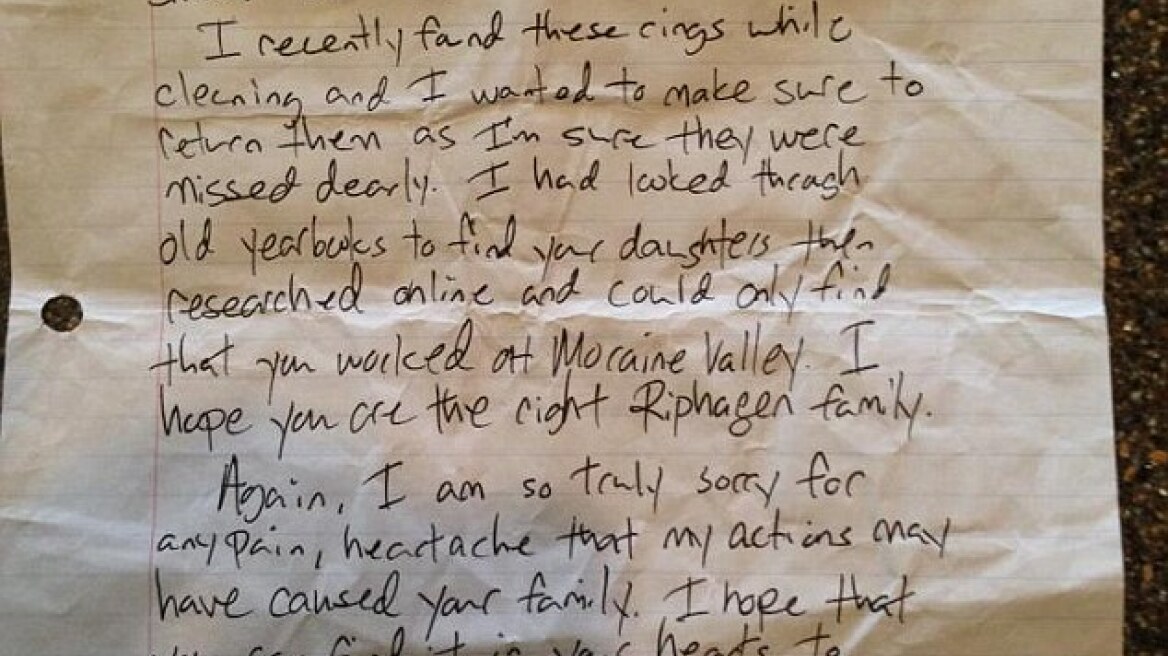 I recently fand these rings while
cleaning and I wanted to make sure to
return them as I'm sure they were
missed dearly. I had looked through
old yearbooks to find your daughters then
researched online and could only find
that you worked at Moraine Valley. I
hope you are the right Riphagen family.
Again, I am so truly sorry for
any pain, heartache that my actions may
have caused your family. I hope that
you can find it in your hearts to